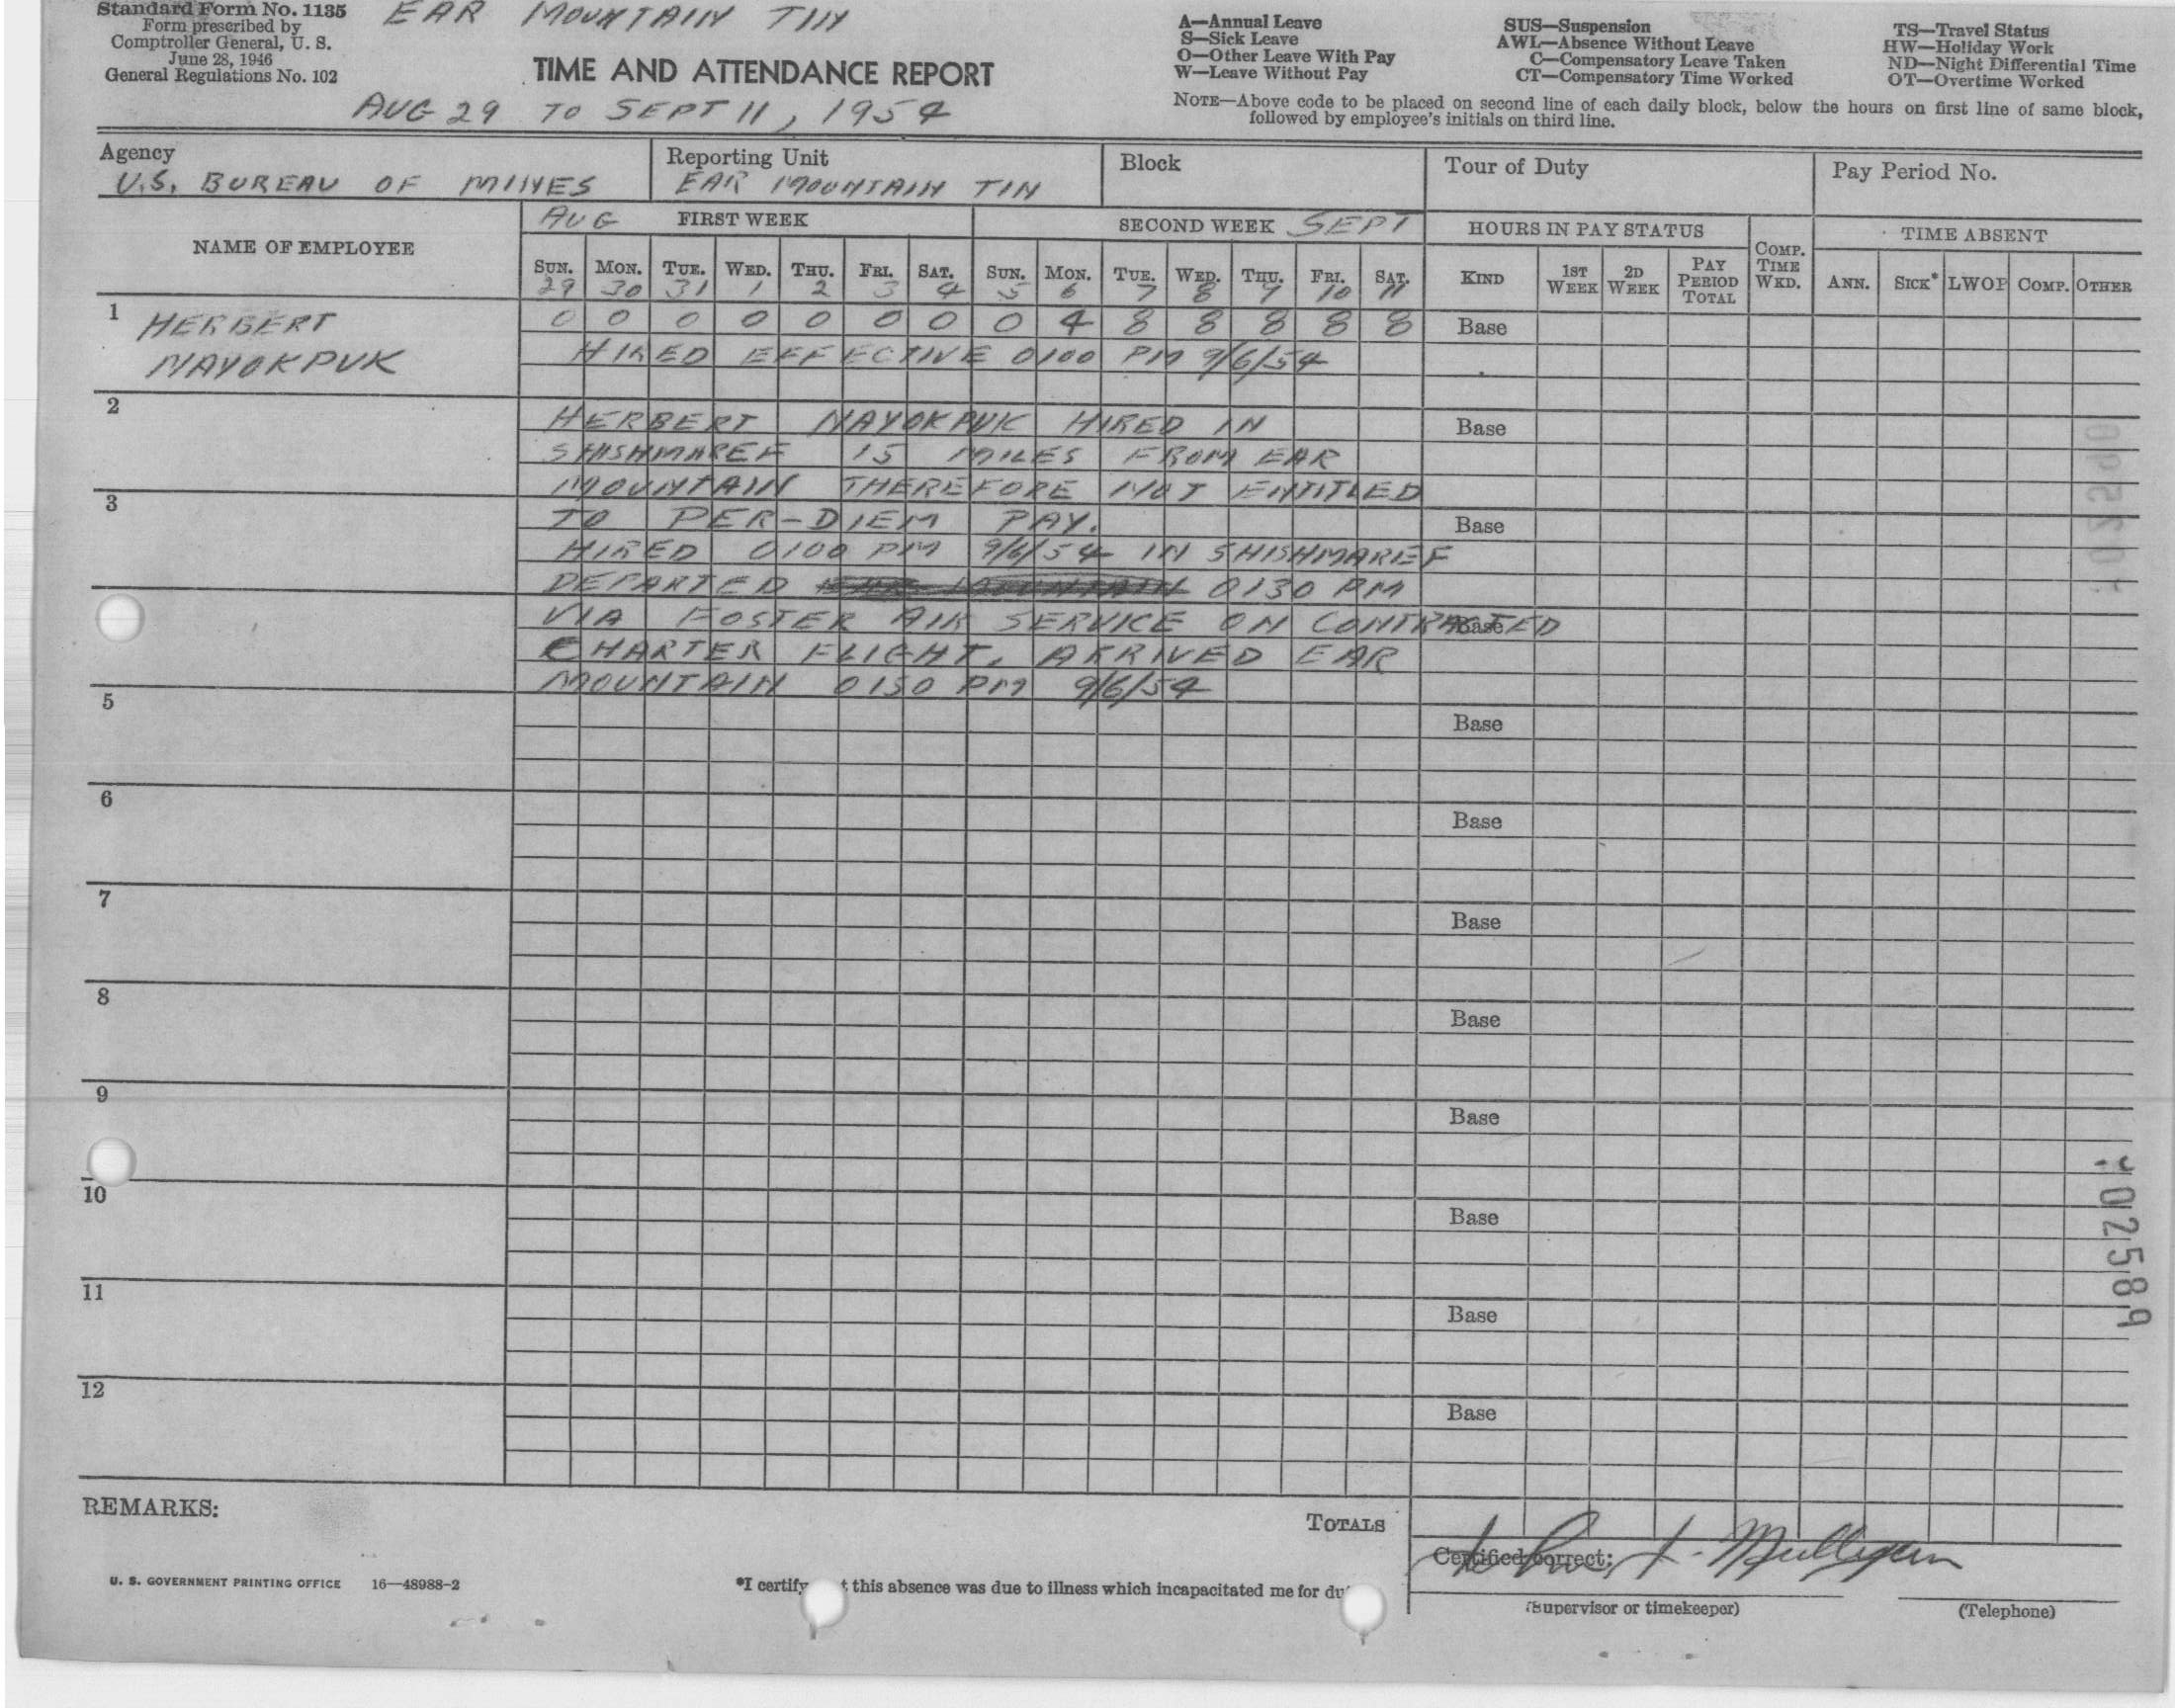 Standard Form No. 1135
Form prescribed by
Comptroller General, U. S.
June 28, 1946
General Regulations No. 102
EAR MOUNTAIN TIN
TIME AND ATTENDANCE REPORT
AUG 29 TO SEPT 11, 1954
A—Annual Leave
S—Sick Leave
O—Other Leave With Pay
W—Leave Without Pay
SUS—Suspension
AWL—Absence Without Leave
C—Compensatory Leave Taken
CT—Compensatory Time Worked
TS—Travel Status
HW—Holiday Work
ND—Night Differential Time
OT—Overtime Worked
NOTE—Above code to be placed on second line of each daily block, below the hours on first line of same block,
followed by employee's initials on third line.
Agency
U.S. BUREAU OF MINES
Reporting Unit
EAR MOUNTAIN TIN
Block
Tour of Duty
Pay Period No.
NAME OF EMPLOYEE
AUG FIRST WEEK
SECOND WEEK SEPT
HOURS IN PAY STATUS
COMP. TIME WKD.
TIME ABSENT
SUN. MON. TUE. WED. THU. FRI. SAT. SUN. MON. TUE. WED. THU. FRI. SAT.
29 30 31 1 2 3 4 5 6 7 8 9 10 11
KIND 1ST WEEK 2D WEEK PAY PERIOD TOTAL
ANN. SICK* LWOP COMP. OTHER
1 HERBERT
NAYOKPUK
0 0 0 0 0 0 0 0 4 8 8 8 8 8 Base
HIRED EFFECTIVE 0100 PM 9/6/54
2
HERBERT NAYOKPUK HIRED IN Base
SHISHMAREF 15 MILES FROM EAR
MOUNTAIN THEREFORE NOT ENTITLED
3
TO PER-DIEM PAY. Base
HIRED 0100 PM 9/6/54 IN SHISHMAREF
DEPARTED 0130 PM
VIA FOSTER AIR SERVICE ON CONTRACTED Base
CHARTER FLIGHT. ARRIVED EAR
MOUNTAIN 0150 PM 9/6/54
5 Base
6 Base
7 Base
8 Base
9 Base
10 Base
11 Base
12 Base
02589
REMARKS:
TOTALS
Certified correct:
Mulligan
U. S. GOVERNMENT PRINTING OFFICE 16—48988-2
*I certify this absence was due to illness which incapacitated me for
(Supervisor or timekeeper)
(Telephone)